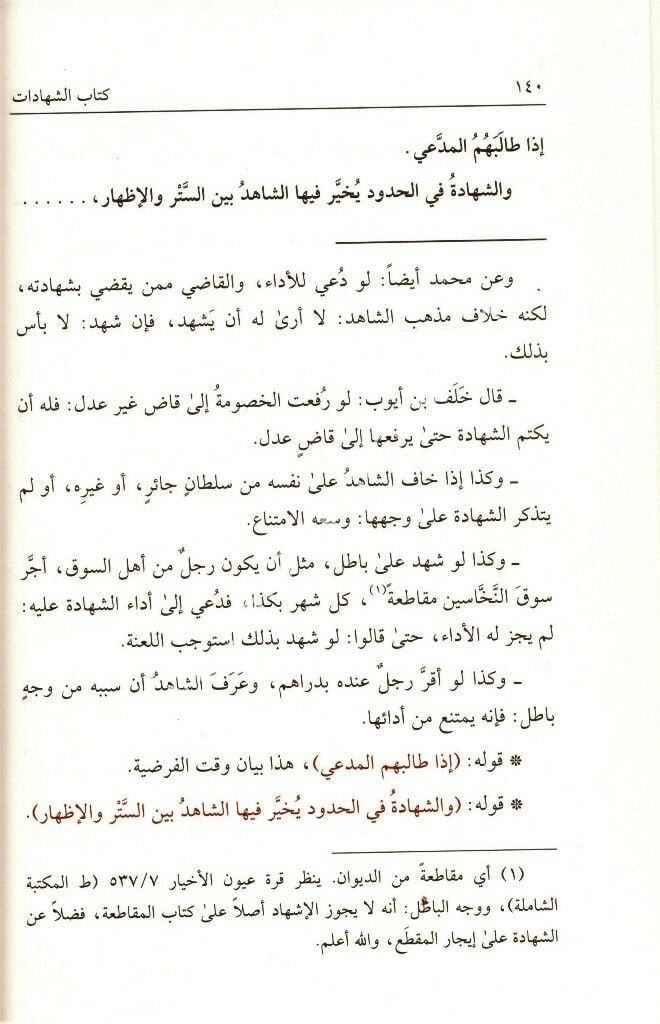 ١٤٠ كتاب الشهادات
إذا طالَبَهُمُ المدَّعي.
والشهادةُ في الحدود يُخيَّر فيها الشاهدُ بين السَّتْر والإظهار، . . . . . .
وعن محمد أيضاً: لو دُعي للأداء، والقاضي ممن يقضي بشهادته،
لكنه خلاف مذهب الشاهد: لا أرىٰ له أن يَشهد، فإن شهد: لا بأس
بذلك.
ـ قال خَلَف بن أيوب: لو رُفعت الخصومةُ إلىٰ قاض غير عدل: فله أن
يكتم الشهادة حتىٰ يرفعها إلىٰ قاضٍ عدل.
ـ وكذا إذا خاف الشاهدُ علىٰ نفسه من سلطانٍ جائرٍ، أو غيرِه، أو لم
يتذكر الشهادة علىٰ وجهها: وسعه الامتناع.
ـ وكذا لو شهد علىٰ باطل، مثل أن يكون رجلٌ من أهل السوق، أجَّر
سوقَ النَّخَّاسين مقاطعةً(١)، كل شهر بكذا، فدُعي إلىٰ أداء الشهادة عليه:
لم يجز له الأداء، حتىٰ قالوا: لو شهد بذلك استوجب اللعنة.
ـ وكذا لو أقرَّ رجلٌ عنده بدراهم، وعَرَفَ الشاهدُ أن سببه من وجهٍ
باطل: فإنه يمتنع من أدائها.
* قوله: (إذا طالبهم المدعي)، هذا بيان وقت الفرضية.
* قوله: (والشهادةُ في الحدود يُخيَّر فيها الشاهدُ بين السَّتْر والإظهار).
(١) أي مقاطعةً من الديوان. ينظر قرة عيون الأخيار ٥٣٧/٧ (ط المكتبة
الشاملة)، ووجه الباطل: أنه لا يجوز الإشهاد أصلاً علىٰ كتاب المقاطعة، فضلاً عن
الشهادة علىٰ إيجار المقطَع، والله أعلم.